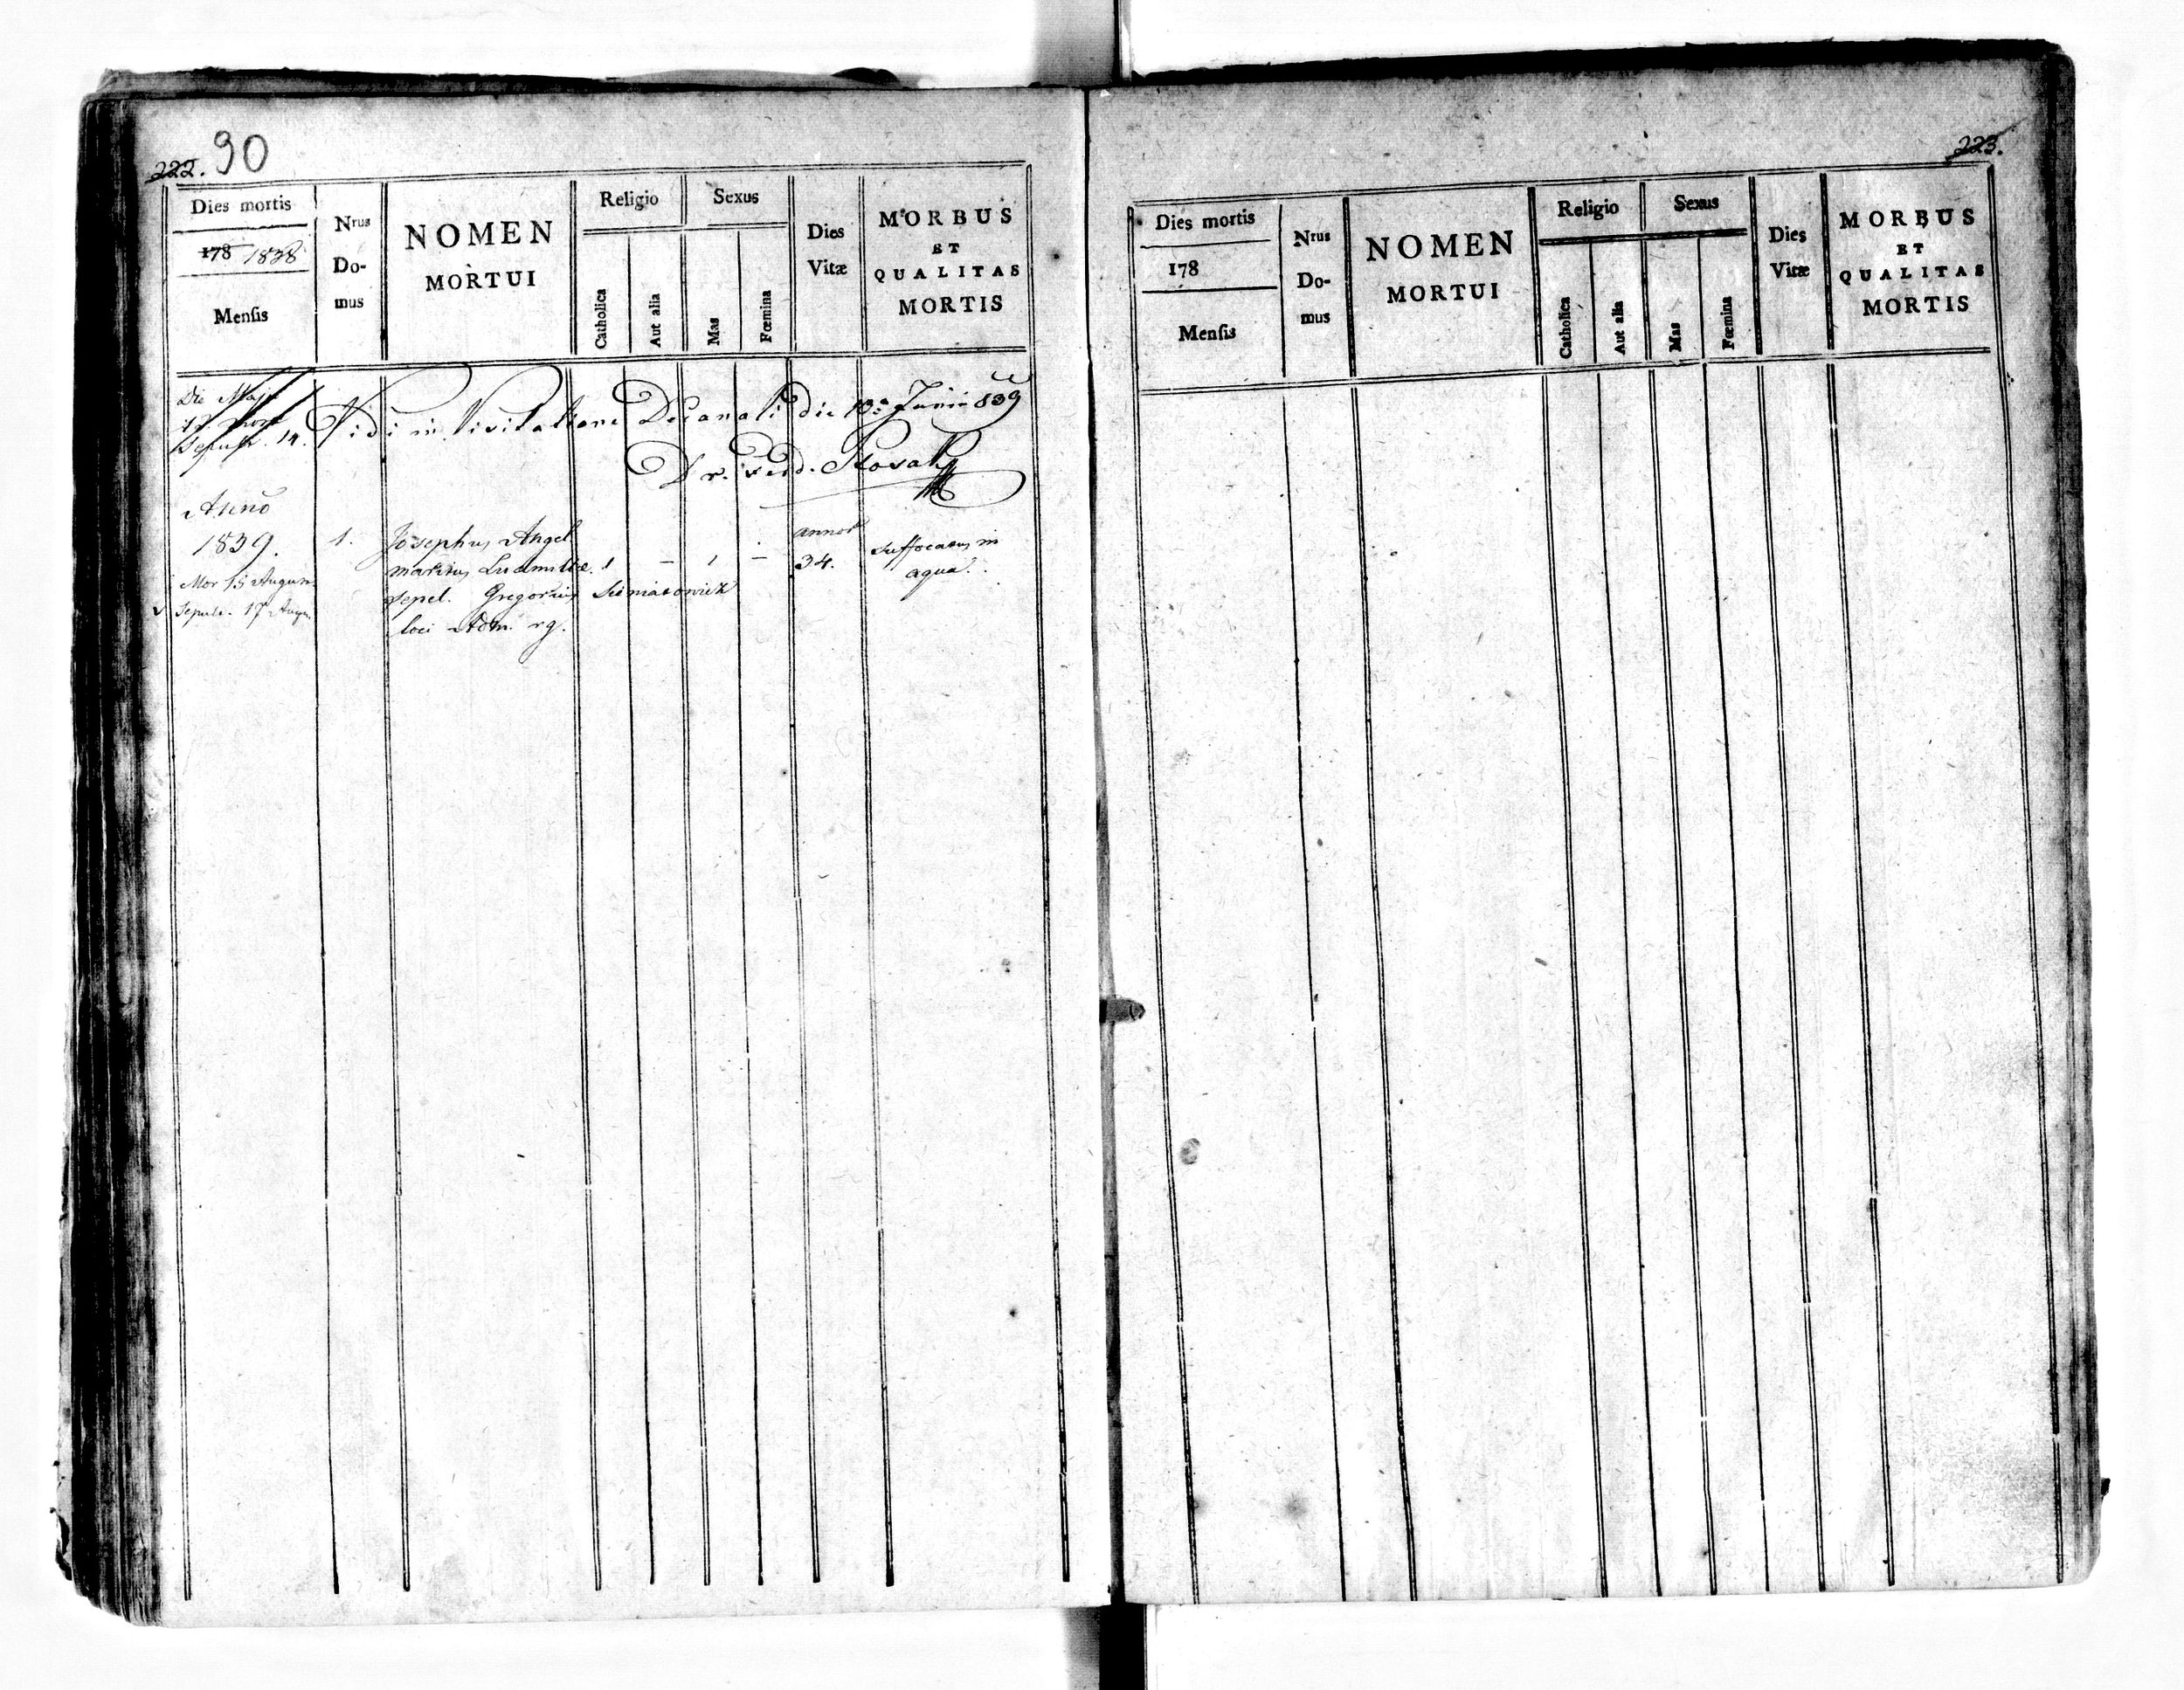 222. 90
Dies mortis
178 1838
Mensis
Nrus
Do-
mus
NOMEN
MORTUI
Religio
Catholica
Aut alia
Sexus
Mas
Fœmina
Dies
Vitæ
MORBUS
ET
QUALITAS
MORTIS
Die Maji
Sepult. 14.
Vidi in Visitatione Decanali die 13: Junii 839
Dr. Ferd.
Anno
1839. 1. Josephus Angel annor suffocatus in
maritus Ludmillæ. 1 – 1 – 34. aqua.
Mor 15 Augus
Sepul. 17 Augu.
sepel. Gregorius
loci Adm. rg.
223.
Dies mortis
178
Mensis
Nrus
Do-
mus
NOMEN
MORTUI
Religio
Catholica
Aut alia
Sexus
Mas
Fœmina
Dies
Vitæ
MORBUS
ET
QUALITAS
MORTIS